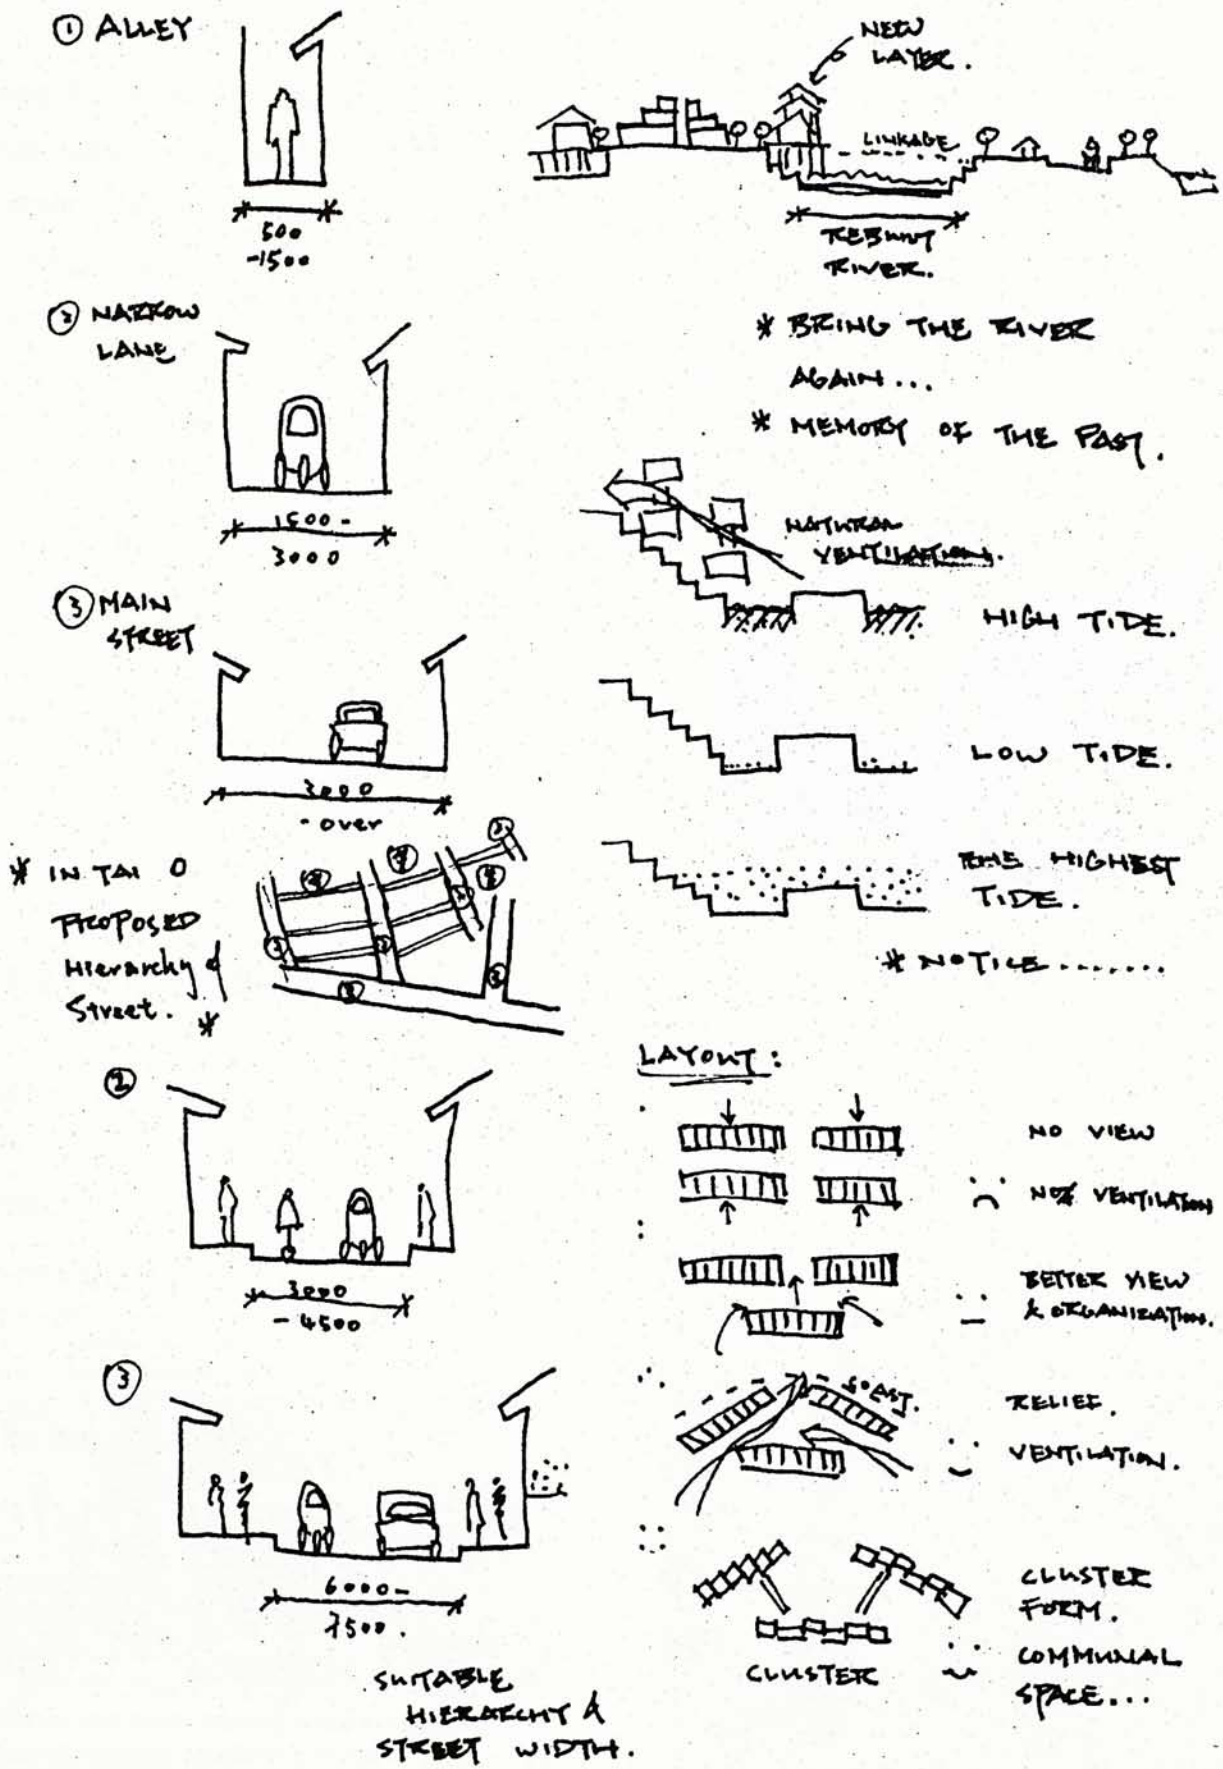 ① ALLEY
500
-1500
② NARROW
LANE
1500-
3000
③ MAIN
STREET
3000
- over
* IN TAI O
PROPOSED
Hierarchy of
Street. *
②
3000
- 4500
③
6000-
7500.
SUITABLE
HIERARCHY &
STREET WIDTH.
NEW
LAYER.
LINKAGE
REBUILT
RIVER.
* BRING THE RIVER
AGAIN...
* MEMORY OF THE PAST.
NATURAL
VENTILATION.
HIGH TIDE.
LOW TIDE.
THE HIGHEST
TIDE.
* NOTICE.......
LAYOUT:
NO VIEW
NO VENTILATION
BETTER VIEW
& ORGANIZATION.
RELIEF.
VENTILATION.
CLUSTER
CLUSTER
FORM.
COMMUNAL
SPACE...